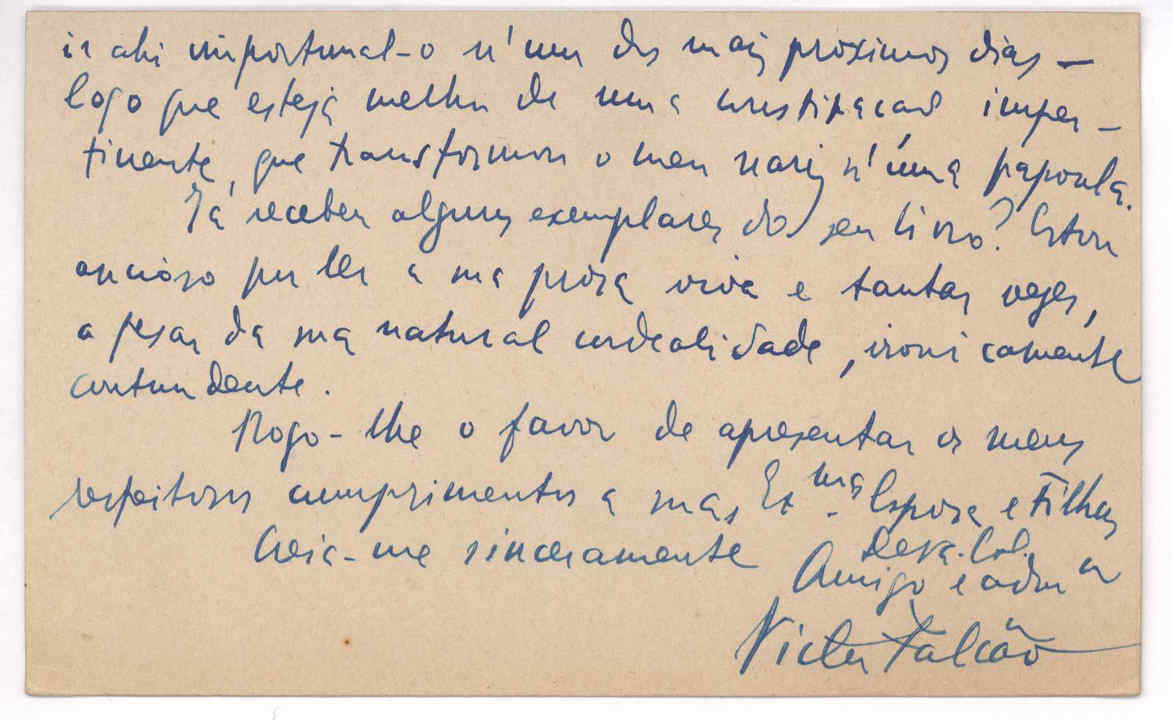 ir ahi importunal-o n'um dos mais proximos dias —
logo que esteja melhor de uma constipacão imper-
tinente, que transformou o meu nariz n'uma papoula.
Já recebeu alguns exemplares do seu livro? Estou
ancioso por ler a sua prosa viva e tantas vezes,
a pesar da sua natural cordealidade, ironicamente
contundente.
Rogo-lhe o favor de apresentar os meus
respeitosos cumprimentos a suas Ex.mas Esposa e Filhas
Creia-me sinceramente
Amigo e adm or
Victor Falcão